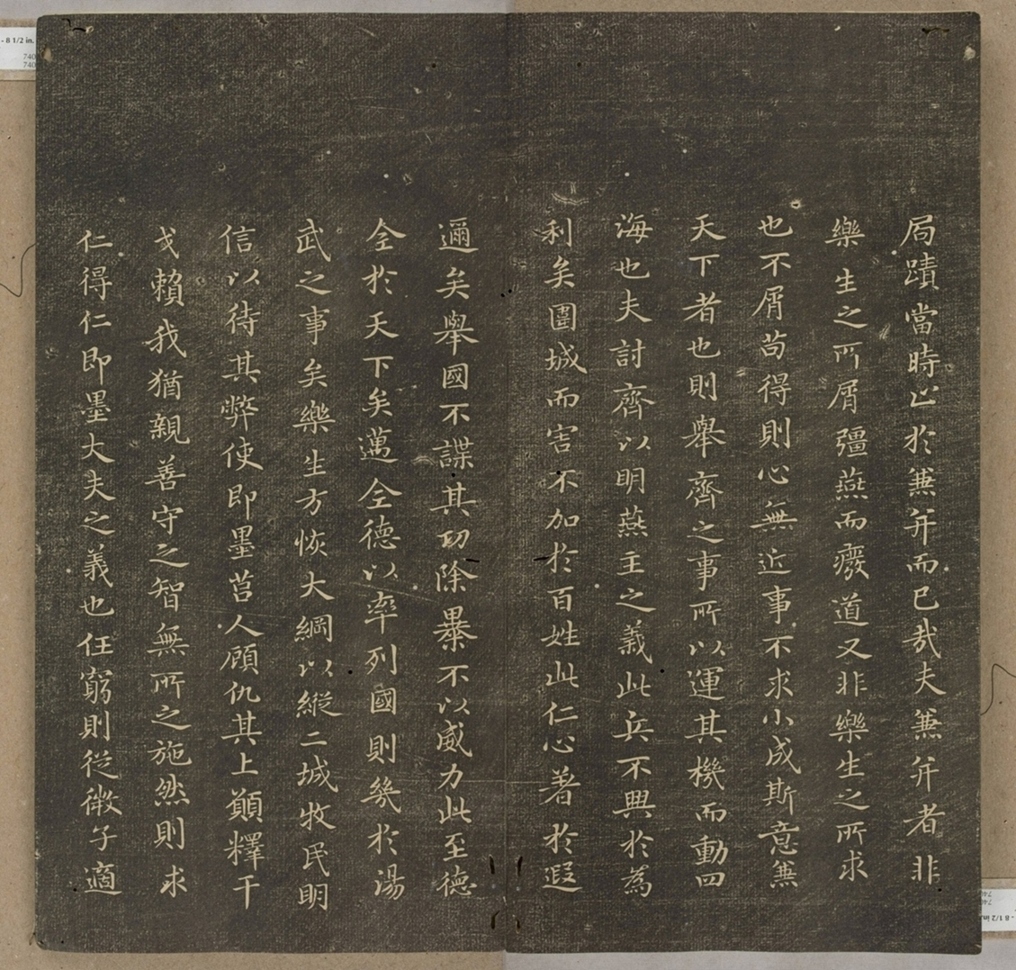 局蹟當時止於兼并而已哉夫兼并者非
樂生之所屑彊燕而癈道又非樂生之所求
也不屑苟得則心無近事不求小成斯意兼
天下者也則舉齊之事所以運其機而動四
海也夫討齊以明燕主之義此兵不興於為
利矣圍城而害不加於百姓此仁心著於遐
邇矣舉國不謀其功除暴不以威力此至德
全於天下矣邁全德以率列國則幾於湯
武之事矣樂生方恢大綱以縱二城牧民明
信以待其弊使即墨莒人顧仇其上願釋干
戈賴我猶親善守之智無所之施然則求
仁得仁即墨大夫之義也任窮則從微子適
- 8 1/2 in.
740
740